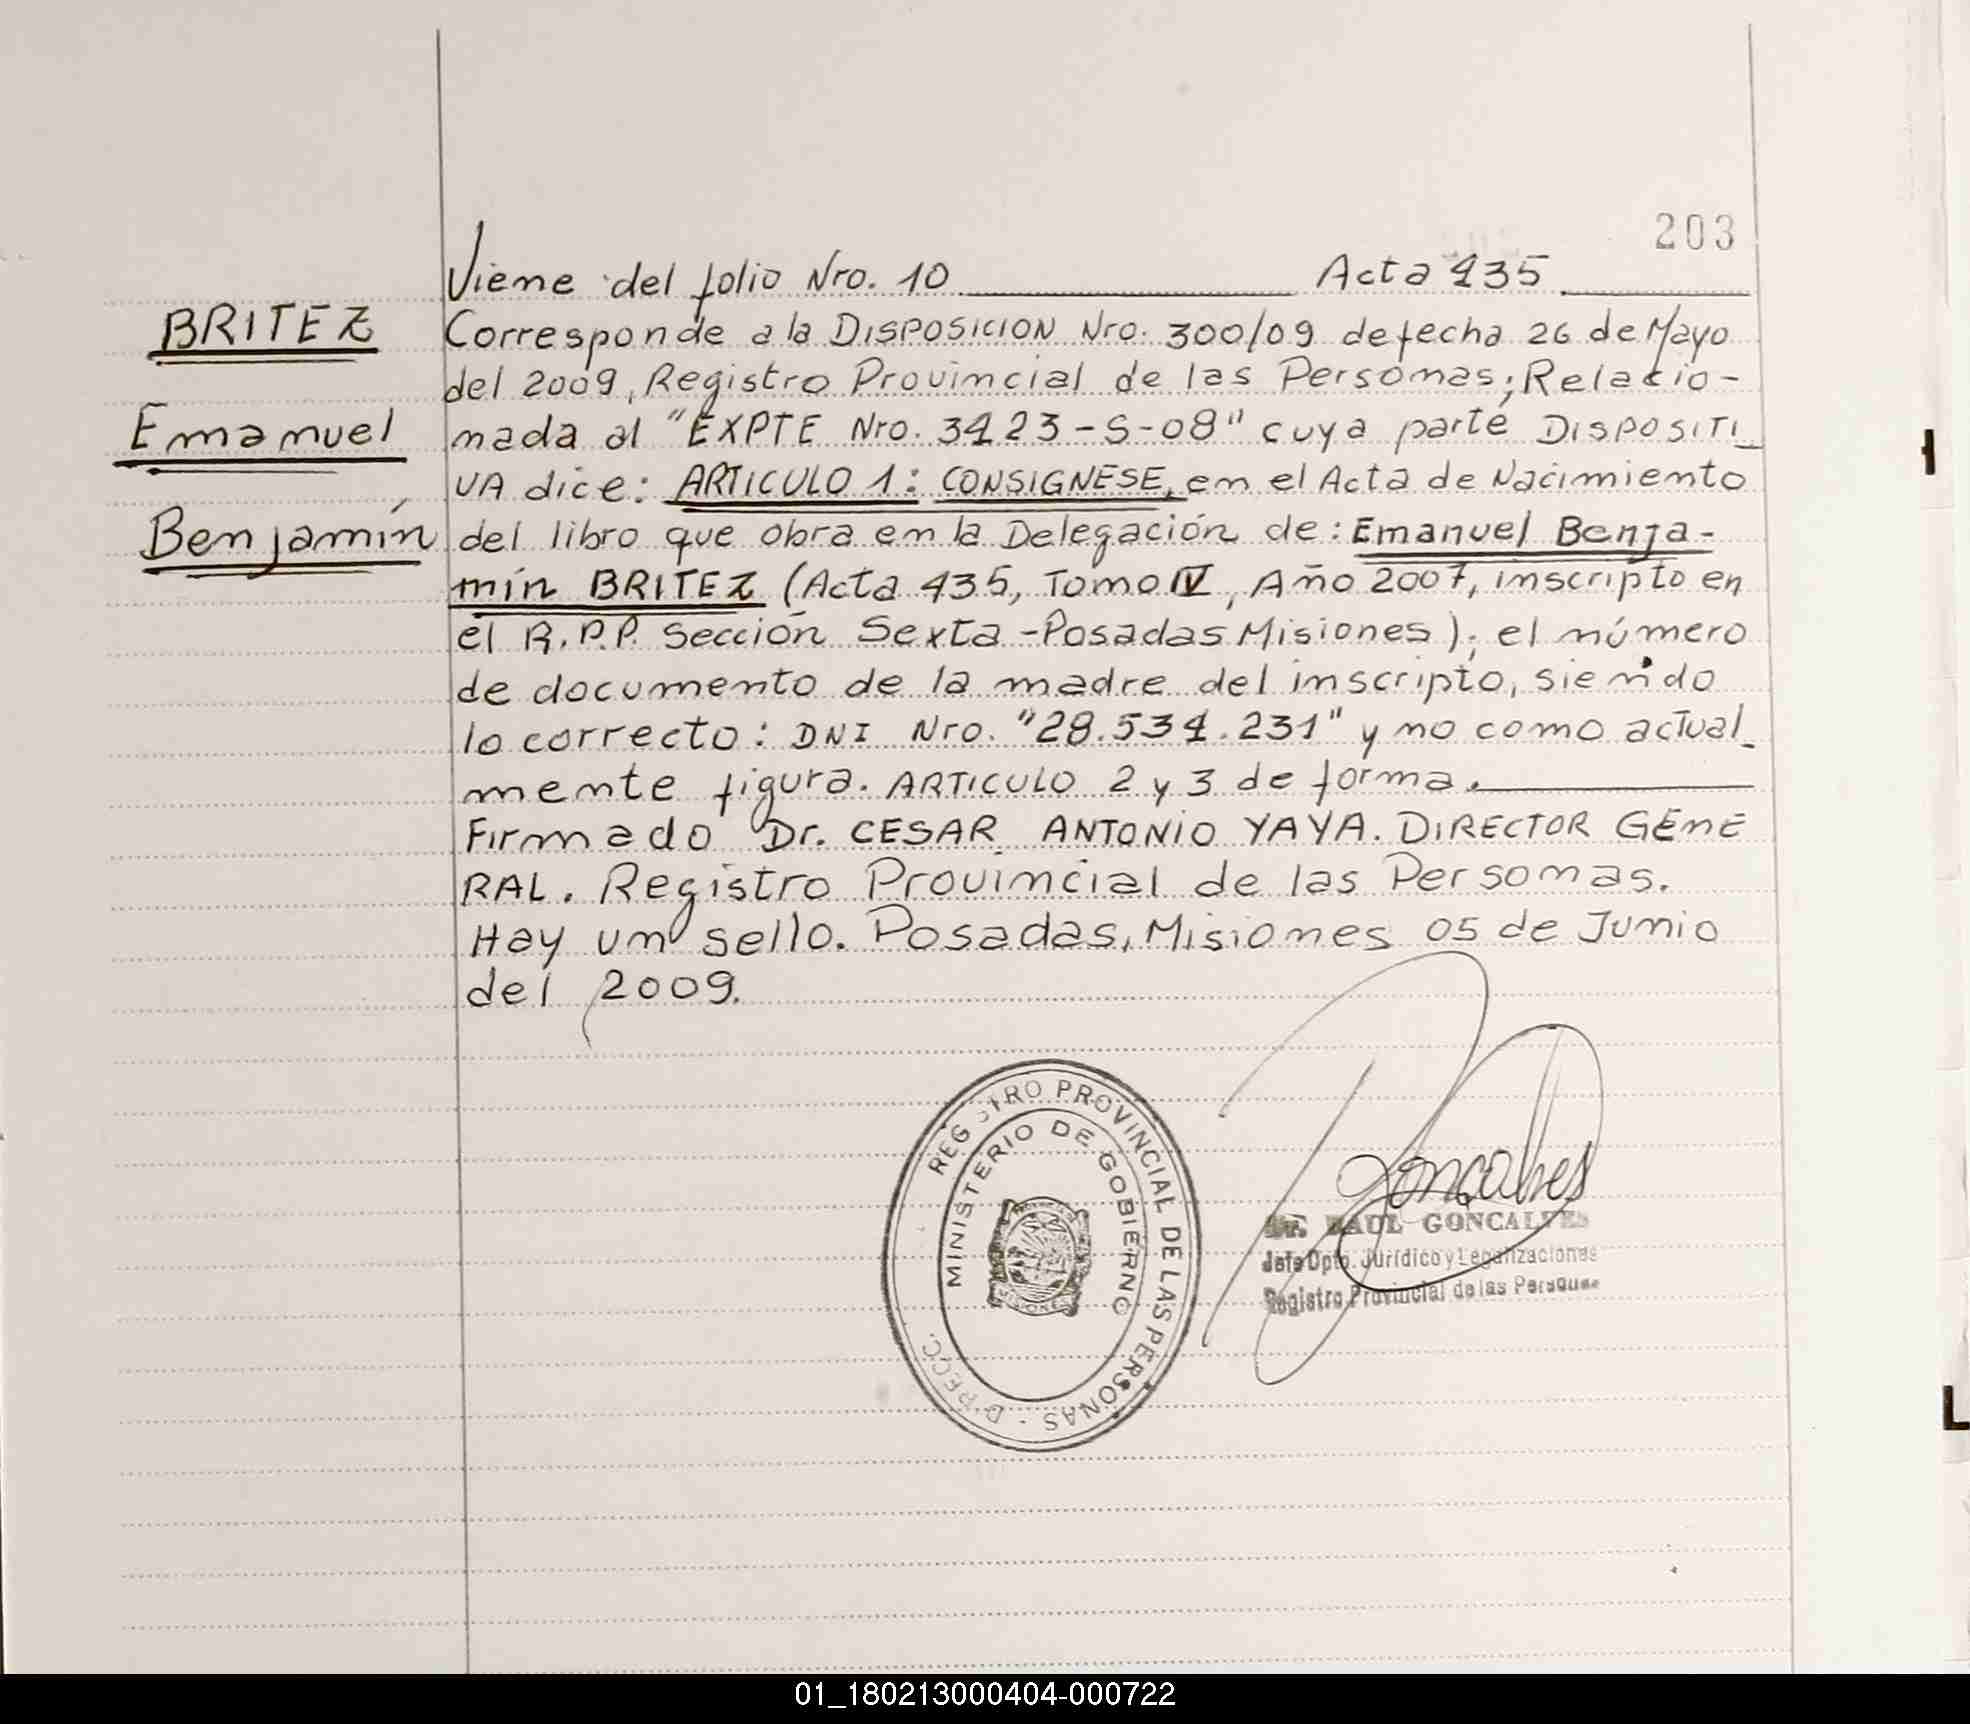 203
Viene del folio Nro. 10 Acta 435
BRITEZ
Emanuel
Benjamín
Corresponde a la DISPOSICION Nro. 300/09 de fecha 26 de Mayo
del 2009, Registro Provincial de las Personas; Relacio-
nada al "EXPTE Nro. 3423-S-08" cuya parte DISPOSITI_
VA dice: ARTICULO 1: CONSIGNESE, en el Acta de Nacimiento
del libro que obra en la Delegación de: Emanuel Benja-
mín BRITEZ (Acta 435, Tomo IV, Año 2007, inscripto en
el R.P.P. Sección Sexta - Posadas Misiones); el número
de documento de la madre del inscripto, siendo
lo correcto: DNI Nro. "28.534.231" y no como actual_
mente figura. ARTICULO 2 y 3 de forma.
Firmado Dr. CESAR ANTONIO YAYA. DIRECTOR GENE
RAL. Registro Provincial de las Personas.
Hay un sello. Posadas, Misiones 05 de Junio
del 2009.
REGISTRO PROVINCIAL DE LAS PERSONAS - DIRECC.
MINISTERIO DE GOBIERNO
MISIONES
Goncalves
RAUL GONCALVES
Jefe Dpto. Jurídico y Legalizaciones
Registro Provincial de las Personas
01_180213000404-000722